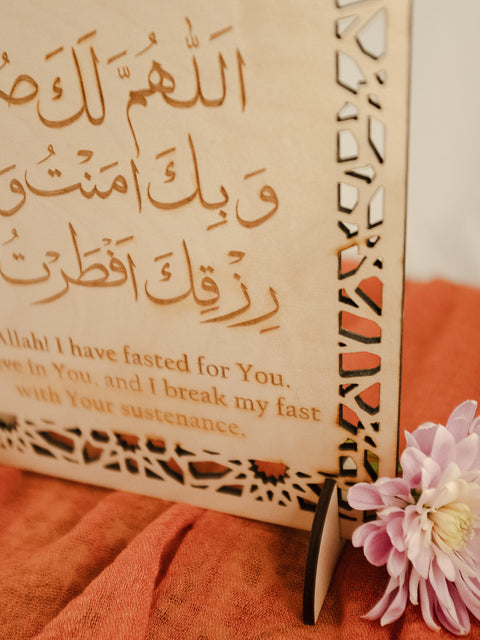 اَللّٰهُمَّ لَكَ صُ
وَبِكَ اٰمَنْتُ وَ
رِزْقِكَ اَفْطَرْتُ
Allah! I have fasted for You.
ve in You, and I break my fast
with Your sustenance.